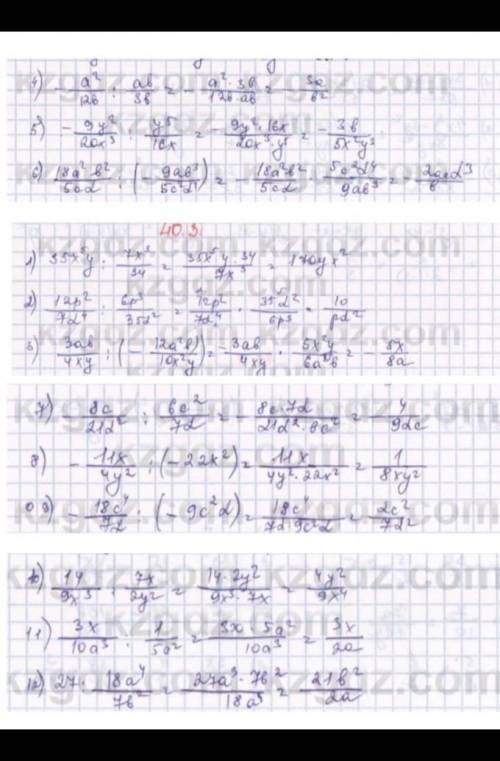 4) - a²/12b : ab/3b = - a²·3b/12b·ab = - 3a/b²
5) - 9y²/20x³ : y⁵/16x = 9y²·16x/20x³·y⁵ = - 3b/5x²y³
6) 18a²b²/5cd : (- 9ab³/5c²d⁴) = - 18a²b²/5cd · 5c²d⁴/9ab³ = - 2acd³/b
40.3.
1) 35x⁵y : 7x³/34 = 35x⁵y·34/7x³ = 170yx²
2) 12p²/7d⁴ : 6p³/35d² = 12p²/7d⁴ · 35d²/6p³ = 10/pd²
3) 3ab/4xy : (- 12a²b/10x²y) = - 3ab/4xy · 5x²y/6a²b = - 5x/8a
7) 8c/21d² : 6c²/7d = - 8c·7d/21d²·6c² = 4/9dc
8) - 11x/4y² : (-22x²) = 11x/4y²·22x² = 1/8xy²
9) - 18c⁴/7d : (-9c²d) = 18c⁴/7d·9c²d = 2c²/7d²
10) 14/9x³ : 7x/2y² = 14·2y²/9x³·7x = 4y²/9x⁴
11) 3x/10a³ : 1/5a² = 3x·5a²/10a³ = 3x/2a
12) 27 · 18a⁴/7b² = 27a³·7b²/18a⁴ = 21b²/2a